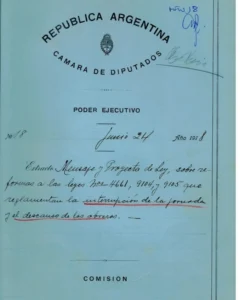 REPÚBLICA ARGENTINA
CAMARA DE DIPUTADOS
PODER EJECUTIVO
Junio 24
Extracto Mensaje y Proyecto de Ley, sobre re-
formas a las leyes Nos 4661, 9104 y 9105 que
reglamentan la interrupción de la jornada
y el descanso de los obreros. —
COMISIÓN